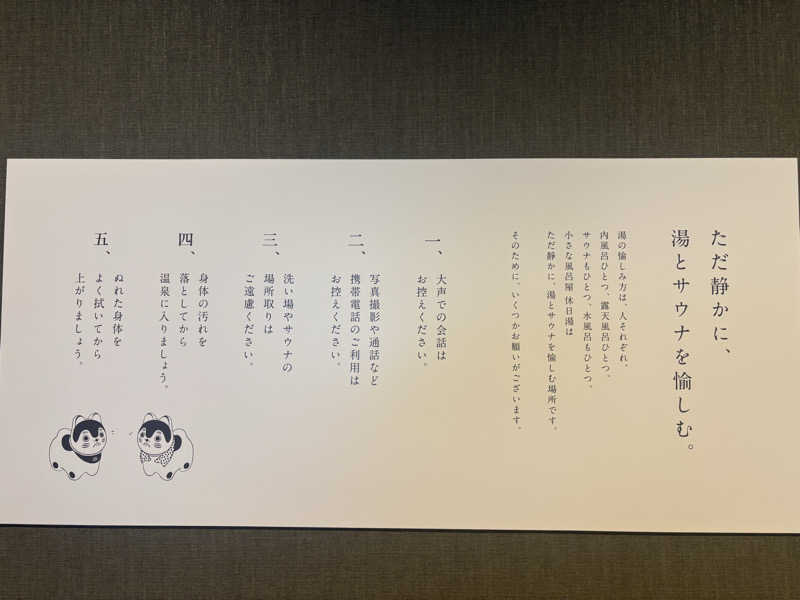 ただ静かに、
湯とサウナを愉しむ。
湯の愉しみ方は、人それぞれ。
内風呂ひとつ、露天風呂ひとつ、
サウナもひとつ、水風呂もひとつ、
小さな風呂屋 休日湯は
ただ静かに、湯とサウナを愉しむ場所です。
そのために、いくつかお願いがございます。
一、
大声での会話は
お控えください。
二、
写真撮影や通話など
携帯電話のご利用は
お控えください。
三、
洗い場やサウナの
場所取りは
ご遠慮ください。
四、
身体の汚れを
落としてから
温泉に入りましょう。
五、
ぬれた身体を
よく拭いてから
上がりましょう。